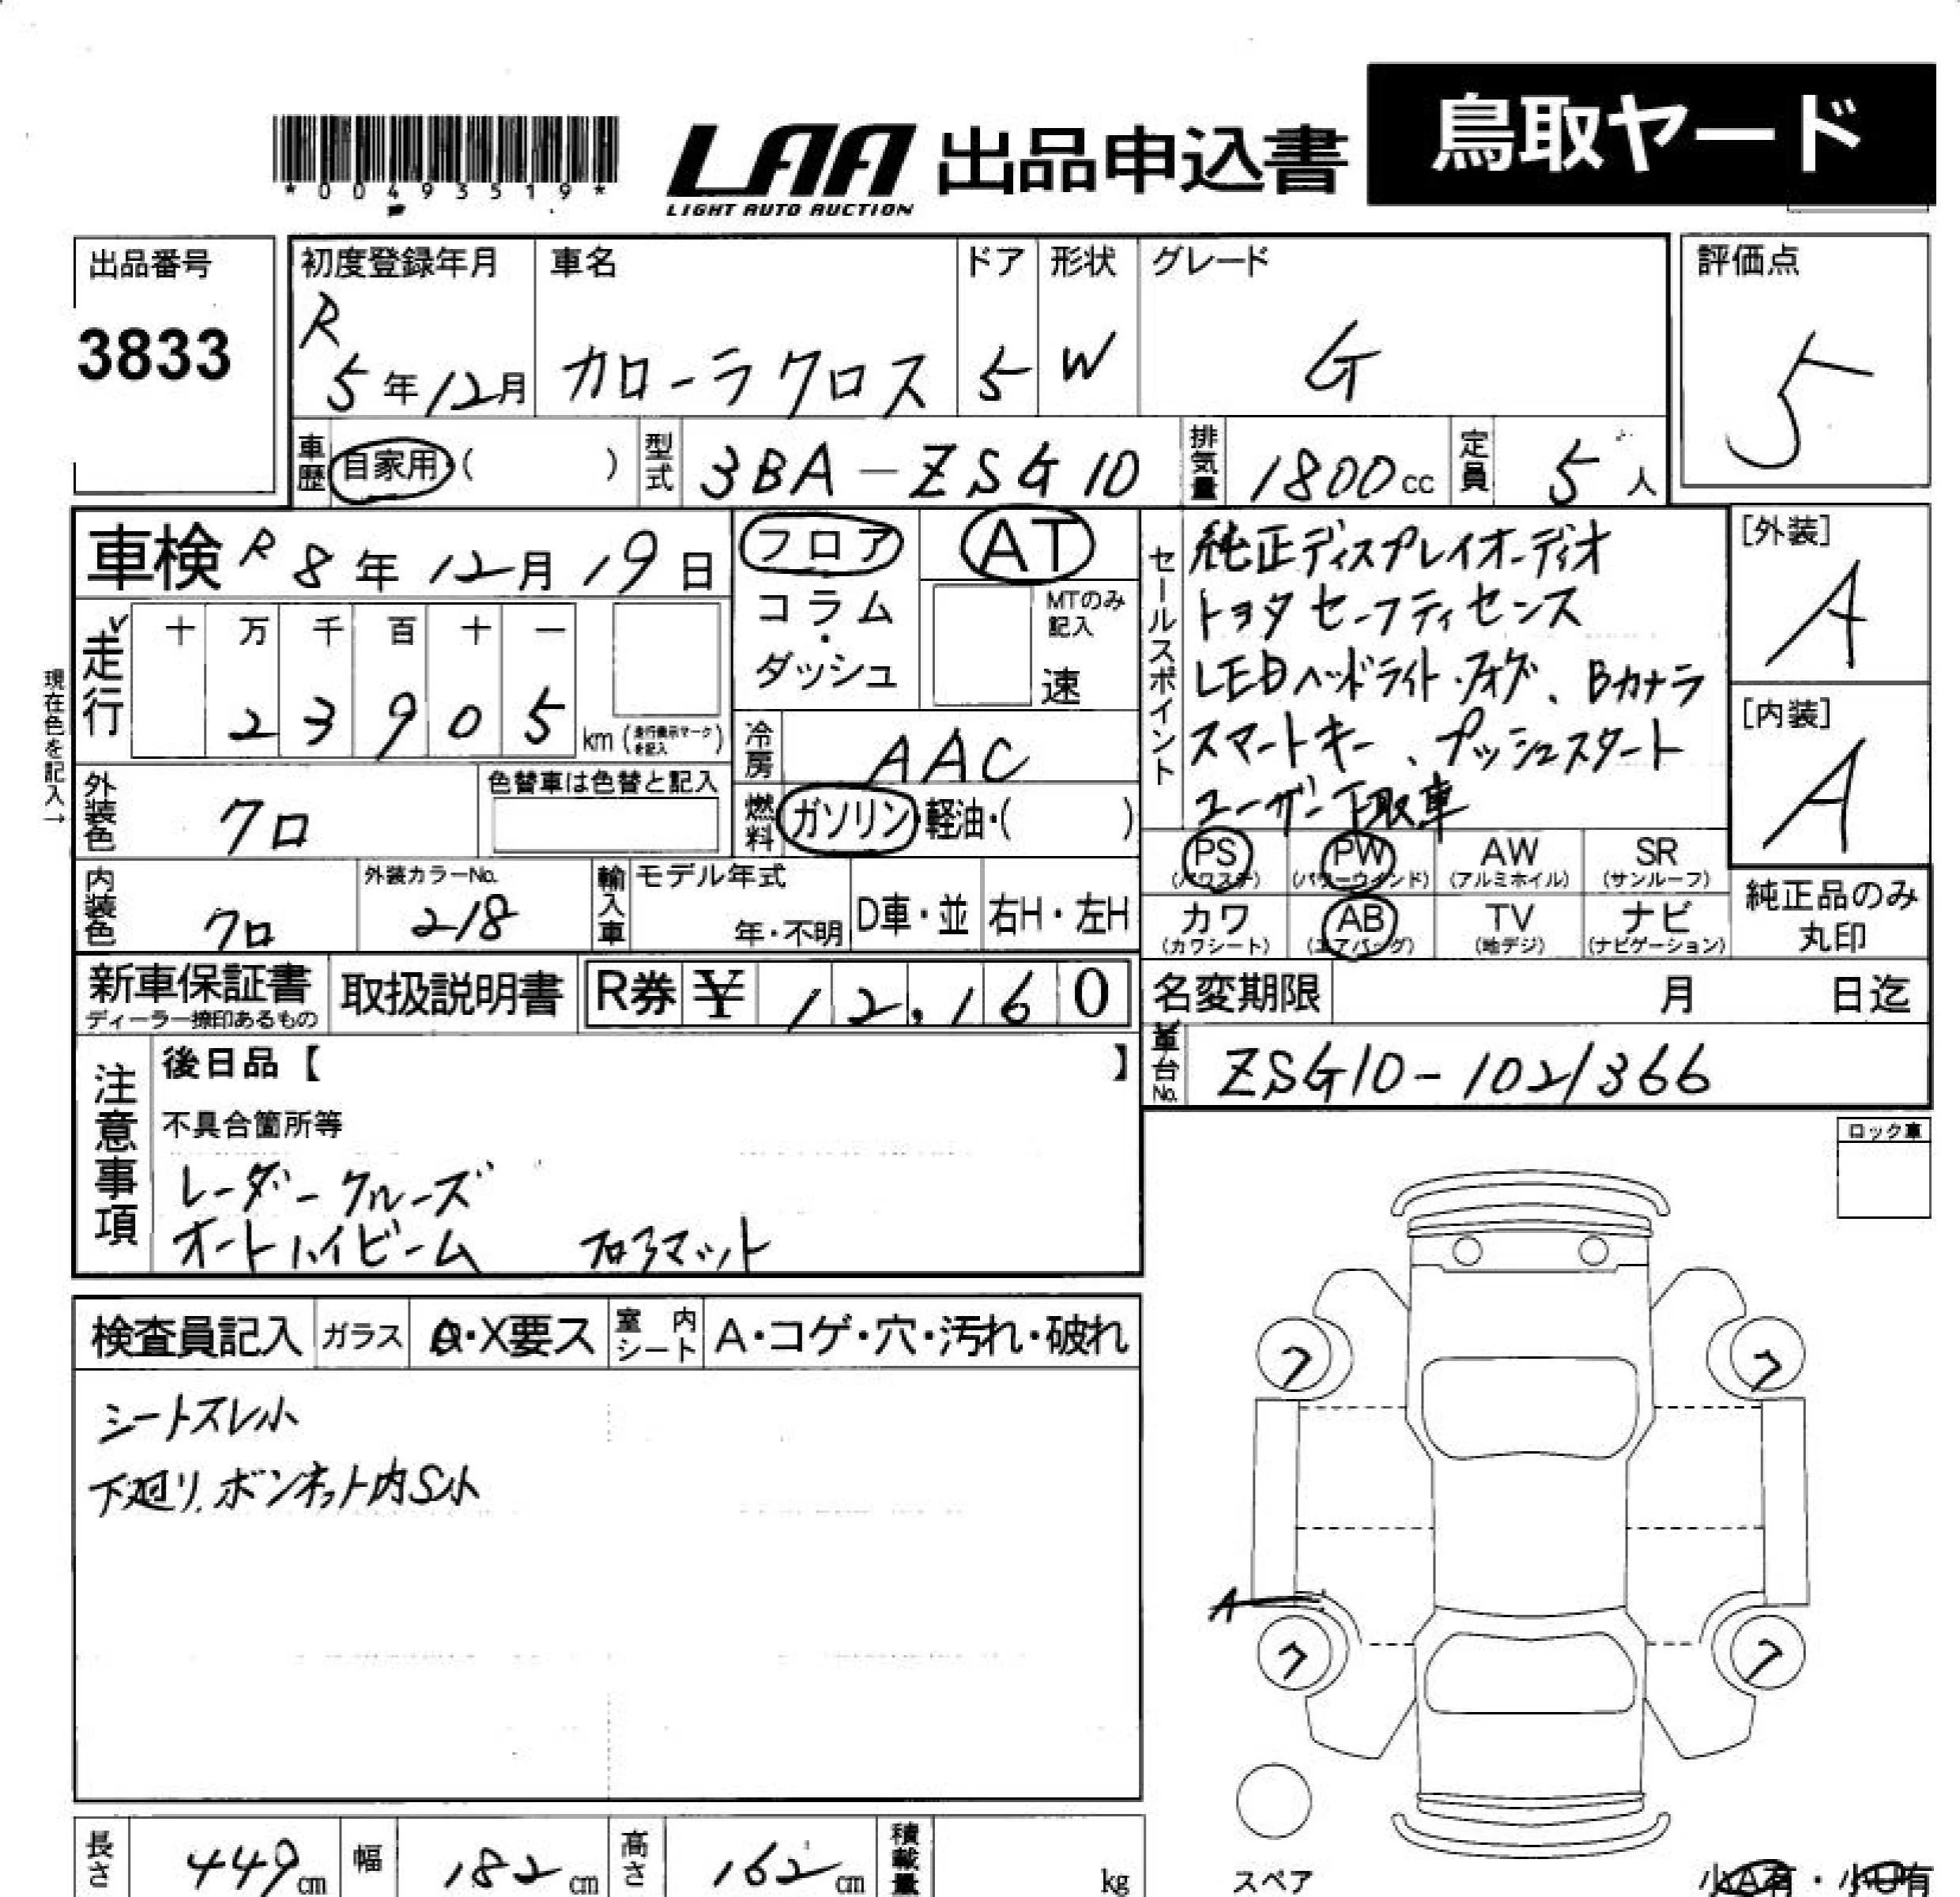 *00493519*
LAA 出品申込書 鳥取ヤード
LIGHT AUTO AUCTION
出品番号 初度登録年月 車名 ドア 形状 グレード 評価点
3833 R 5年12月 カローラクロス 5 W G 5
車歴 自家用・( ) 型式 3BA-ZSG10 排気量 1800cc 定員 5人
車検 R8年12月19日 フロア AT
コラム・ダッシュ MTのみ記入 速
走行 十 万 千 百 十 一
2 3 9 0 5 km (走行表示マークを記入)
現在色を記入→
冷房 AAC
外装色 クロ 色替車は色替と記入
燃料 ガソリン・軽油・( )
内装色 クロ 外装カラーNo. 218 輸入車 モデル年式 年・不明 D車・並 右H・左H
セールスポイント
純正ディスプレイオーディオ
トヨタセーフティセンス
LEDヘッドライト・フォグ、Bカメラ
スマートキー、プッシュスタート
ユーザー下取車
[外装] A
[内装] A
PS (パワステ) PW (パワーウインド) AW (アルミホイル) SR (サンルーフ)
カワ (カワシート) AB (エアバッグ) TV (地デジ) ナビ (ナビゲーション)
純正品のみ丸印
新車保証書 ディーラー捺印あるもの 取扱説明書 R券 ¥ 12,160
名変期限 月 日迄
車台No. ZSG10-1021366
注意事項
後日品【 】
不具合箇所等
レーダークルーズ
オートハイビーム フロアマット
ロック車
検査員記入 ガラス A・X要ス 室内シート A・コゲ・穴・汚れ・破れ
シートスレ小
下廻り、ボンネット内S小
フ フ
A
フ フ
スペア
長さ 449cm 幅 182cm 高さ 162cm 積載量 kg
小A有・小U有